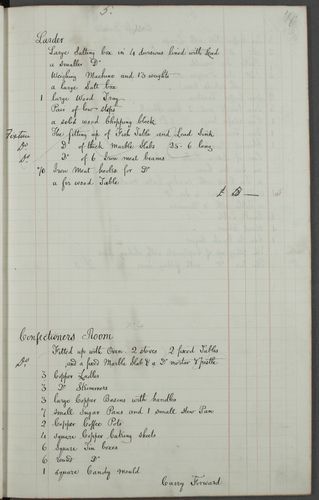 5.
Larder
Large Salting box in 4 divisions lined with Lead
a Smaller Do
Weighing Machine and 13 weights
a large Salt box
1 large Wood Tray
Pair of low steps
a solid wood Chopping block
Fixture The fitting up of Fish Table and Lead Sink
Do Do of thick Marble Slabs 35-6 long
Do Do of 6 Iron meat beams
70 Iron Meat hooks for Do
a fir wood Table
Confectioners Room
Fitted up with Oven 2 stoves 2 fixed Tables
Do and a fixd Marble Slab & a Do mortar & Pestle
3 Copper Ladles
3 Do Skimmers
3 large Copper Basins with handles
7 small Sugar Pans and 1 small Stew Pan
2 Copper Coffee Pots
4 square Copper baking sheets
6 Square Tin boxes
6 round Do
1 square Candy mould
Carry Forward